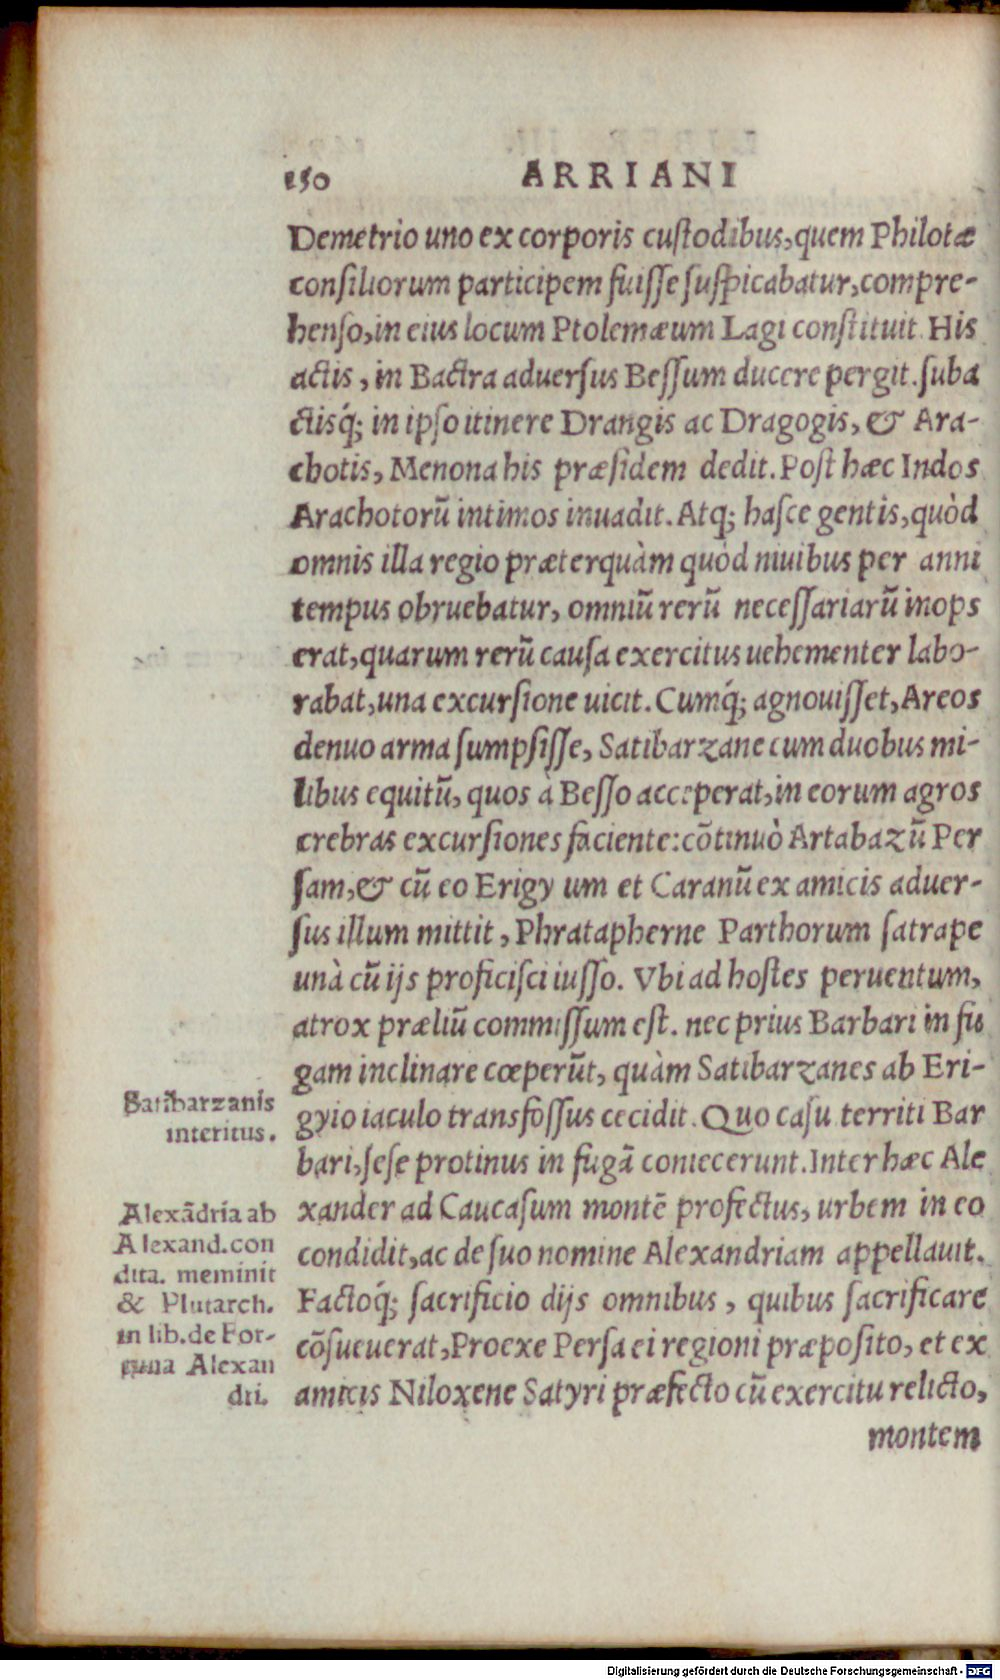 150 ARRIANI
Demetrio uno ex corporis custodibus, quem Philotæ
consiliorum participem fuisse suspicabatur, compre-
henso, in eius locum Ptolemæum Lagi constituit. His
actis, in Bactra aduersus Bessum ducere pergit. suba
ctisq́; in ipso itinere Drangis ac Dragogis, & Ara-
chotis, Menona his præsidem dedit. Post hæc Indos
Arachotorū intimos inuadit. Atq; hasce gentis, quòd
omnis illa regio præterquàm quòd niuibus per anni
tempus obruebatur, omniū rerū necessariarū inops
erat, quarum rerū causa exercitus uehementer labo-
rabat, una excursione uicit. Cumq́; agnouisset, Areos
denuo arma sumpsisse, Satibarzane cum duobus mi-
libus equitū, quos à Besso acceperat, in eorum agros
crebras excursiones faciente: cōtinuò Artabazū Per
sam, & cū eo Erigy um et Caranū ex amicis aduer-
sus illum mittit, Phratapherne Parthorum satrape
unà cū ijs proficisci iusso. Vbi ad hostes peruentum,
atrox præliū commissum est. nec prius Barbari in fu
gam inclinare cœperūt, quàm Satibarzanes ab Eri-
gyio iaculo transfossus cecidit. Quo casu territi Bar
bari, sese protinus in fugā coniecerunt. Inter hæc Ale
xander ad Caucasum montē profectus, urbem in eo
condidit, ac de suo nomine Alexandriam appellauit.
Factoq́; sacrificio dijs omnibus, quibus sacrificare
cōsueuerat, Proexe Persa ei regioni præposito, et ex
amicis Niloxene Satyri præfecto cū exercitu relicto,
montem
Satibarzanis
interitus.
Alexādria ab
Alexand. con
dita. meminit
& Plutarch.
in lib. de For-
tuna Alexan
dri.
Digitalisierung gefördert durch die Deutsche Forschungsgemeinschaft - DFG